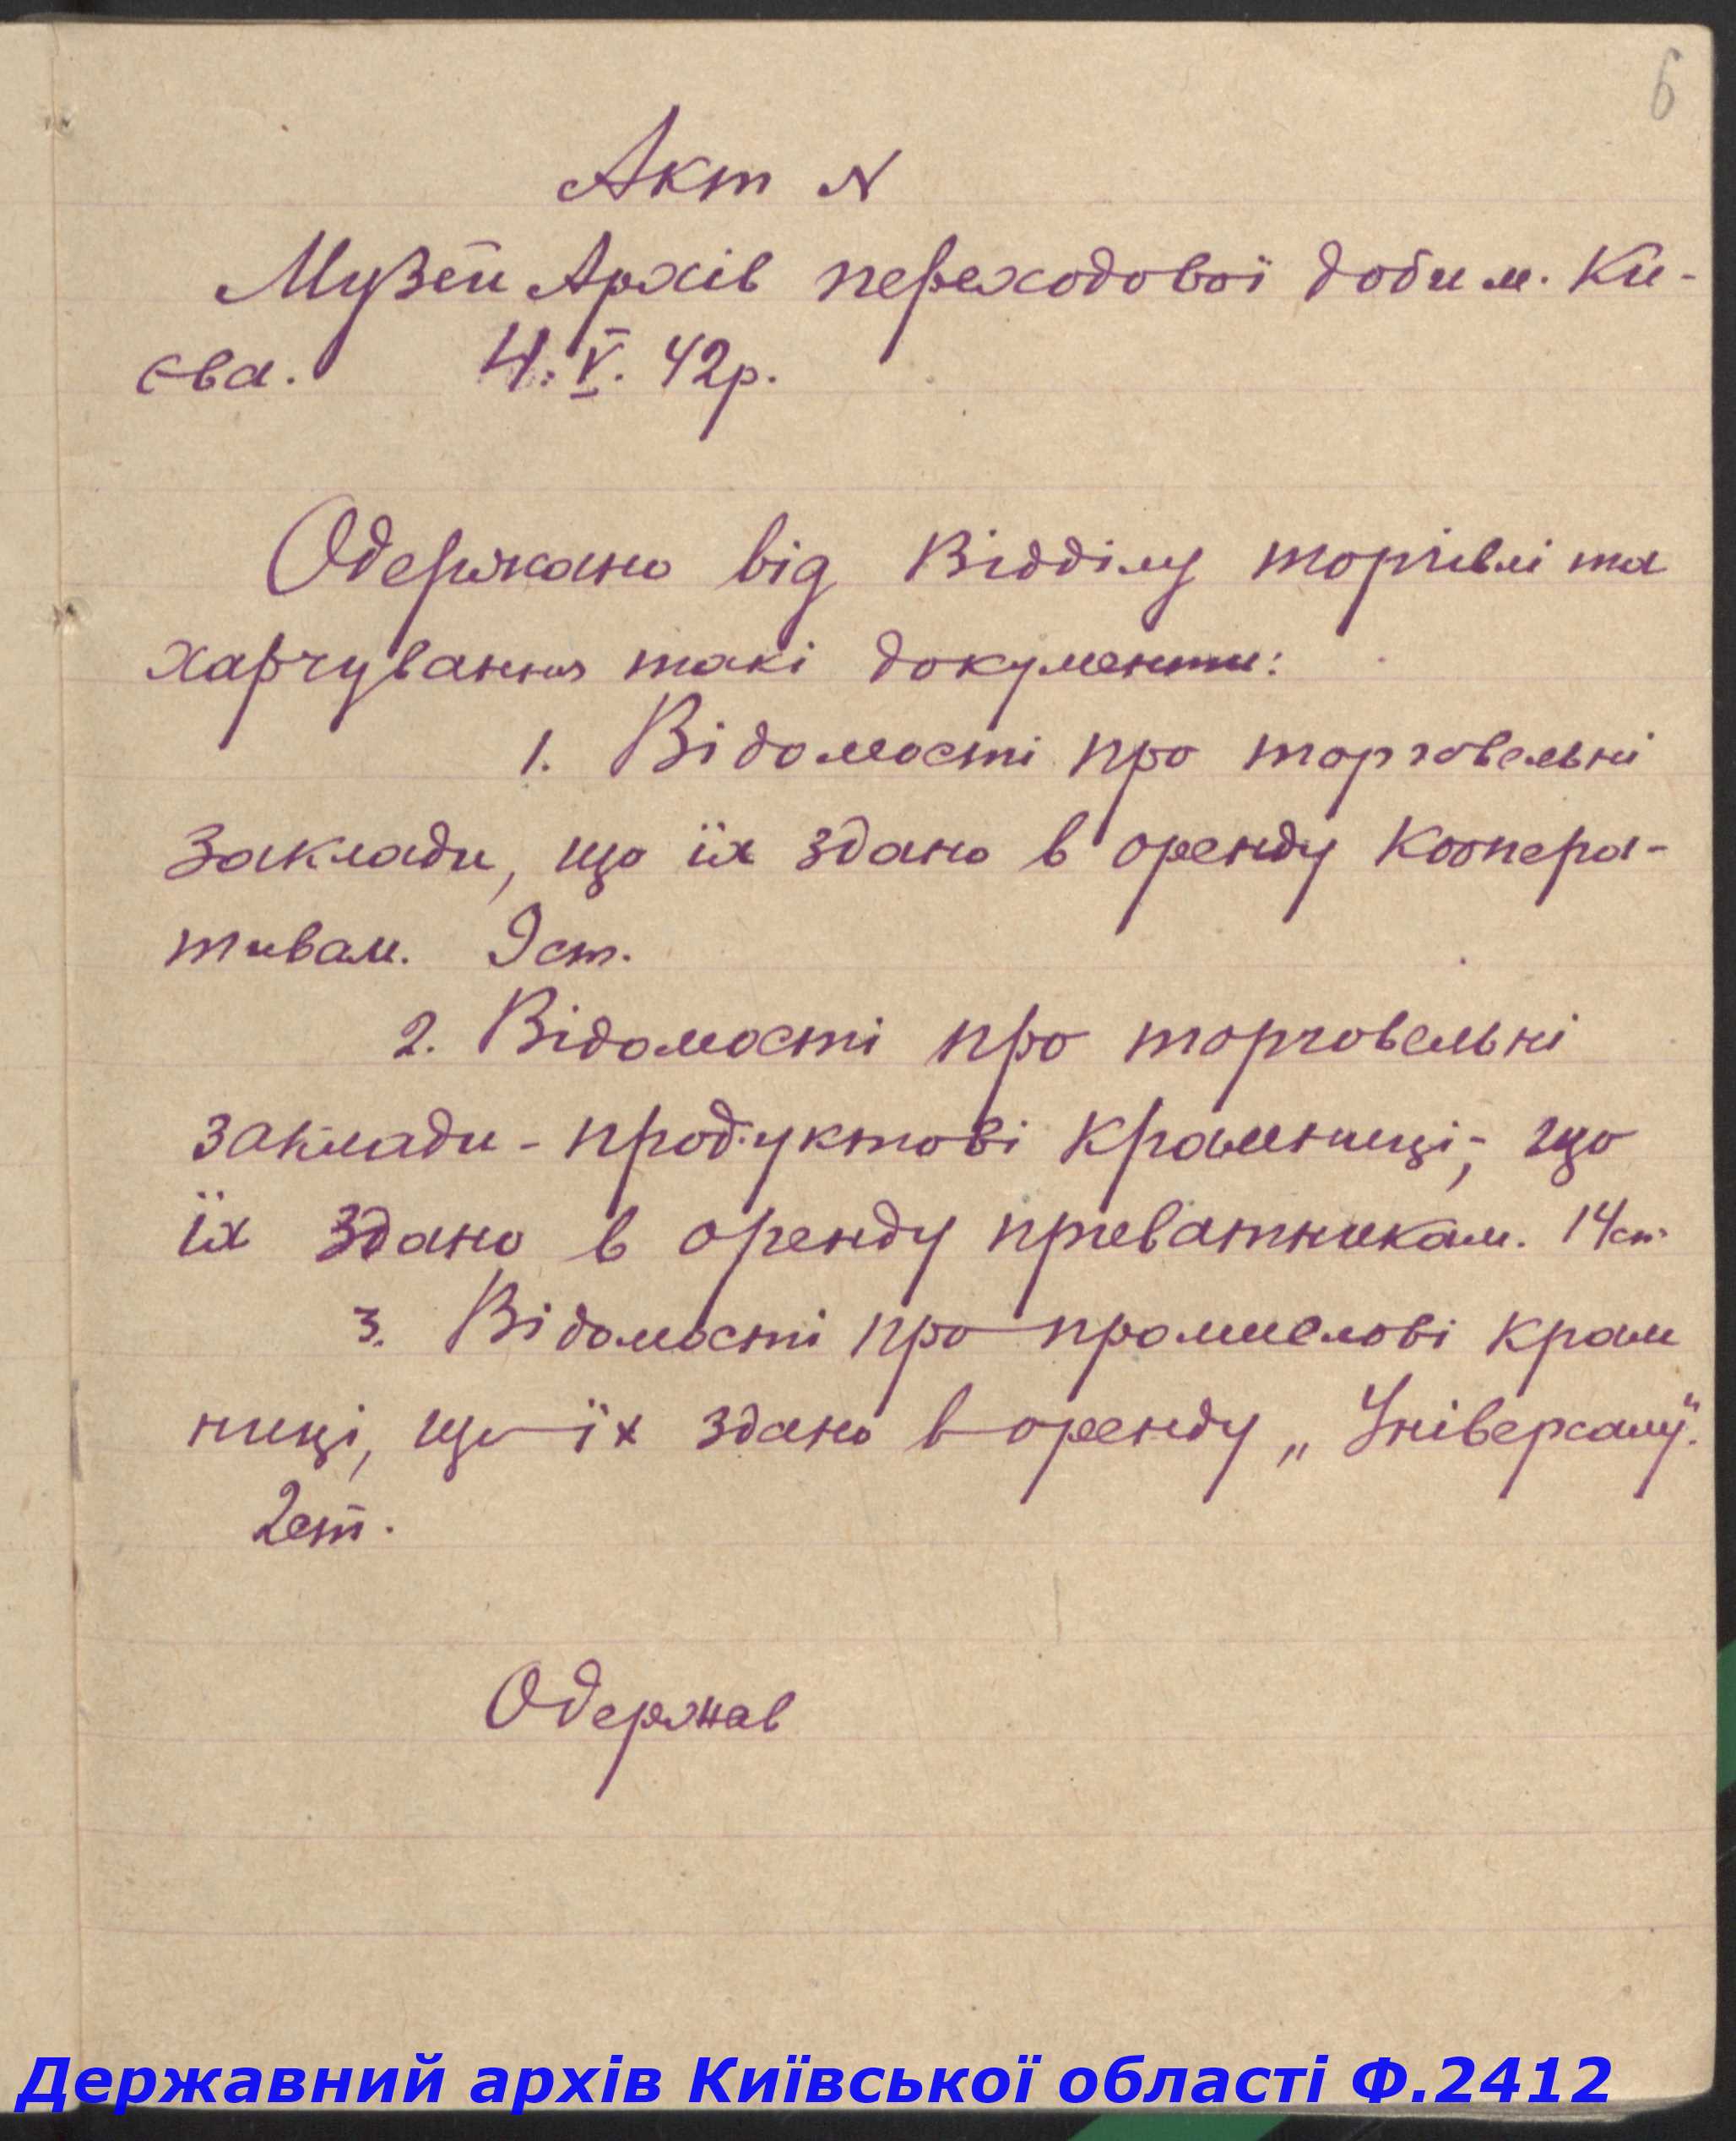 6
Акт N
Музей Архів переходової доби м. Ки-
єва. 4. V. 42р.
Одержано від Відділу торгівлі та
харчування такі документи:
1. Відомості про торговельні
заклади, що їх здано в оренду коопера-
тивам. 9 ст.
2. Відомості про торговельні
заклади - продуктові крамниці-, що
їх здано в оренду приватникам. 14 ст.
3. Відомості про промислові крам
ниці, що їх здано в оренду „Універсалу".
2 ст.
Одержав
Державний архів Київської області Ф.2412